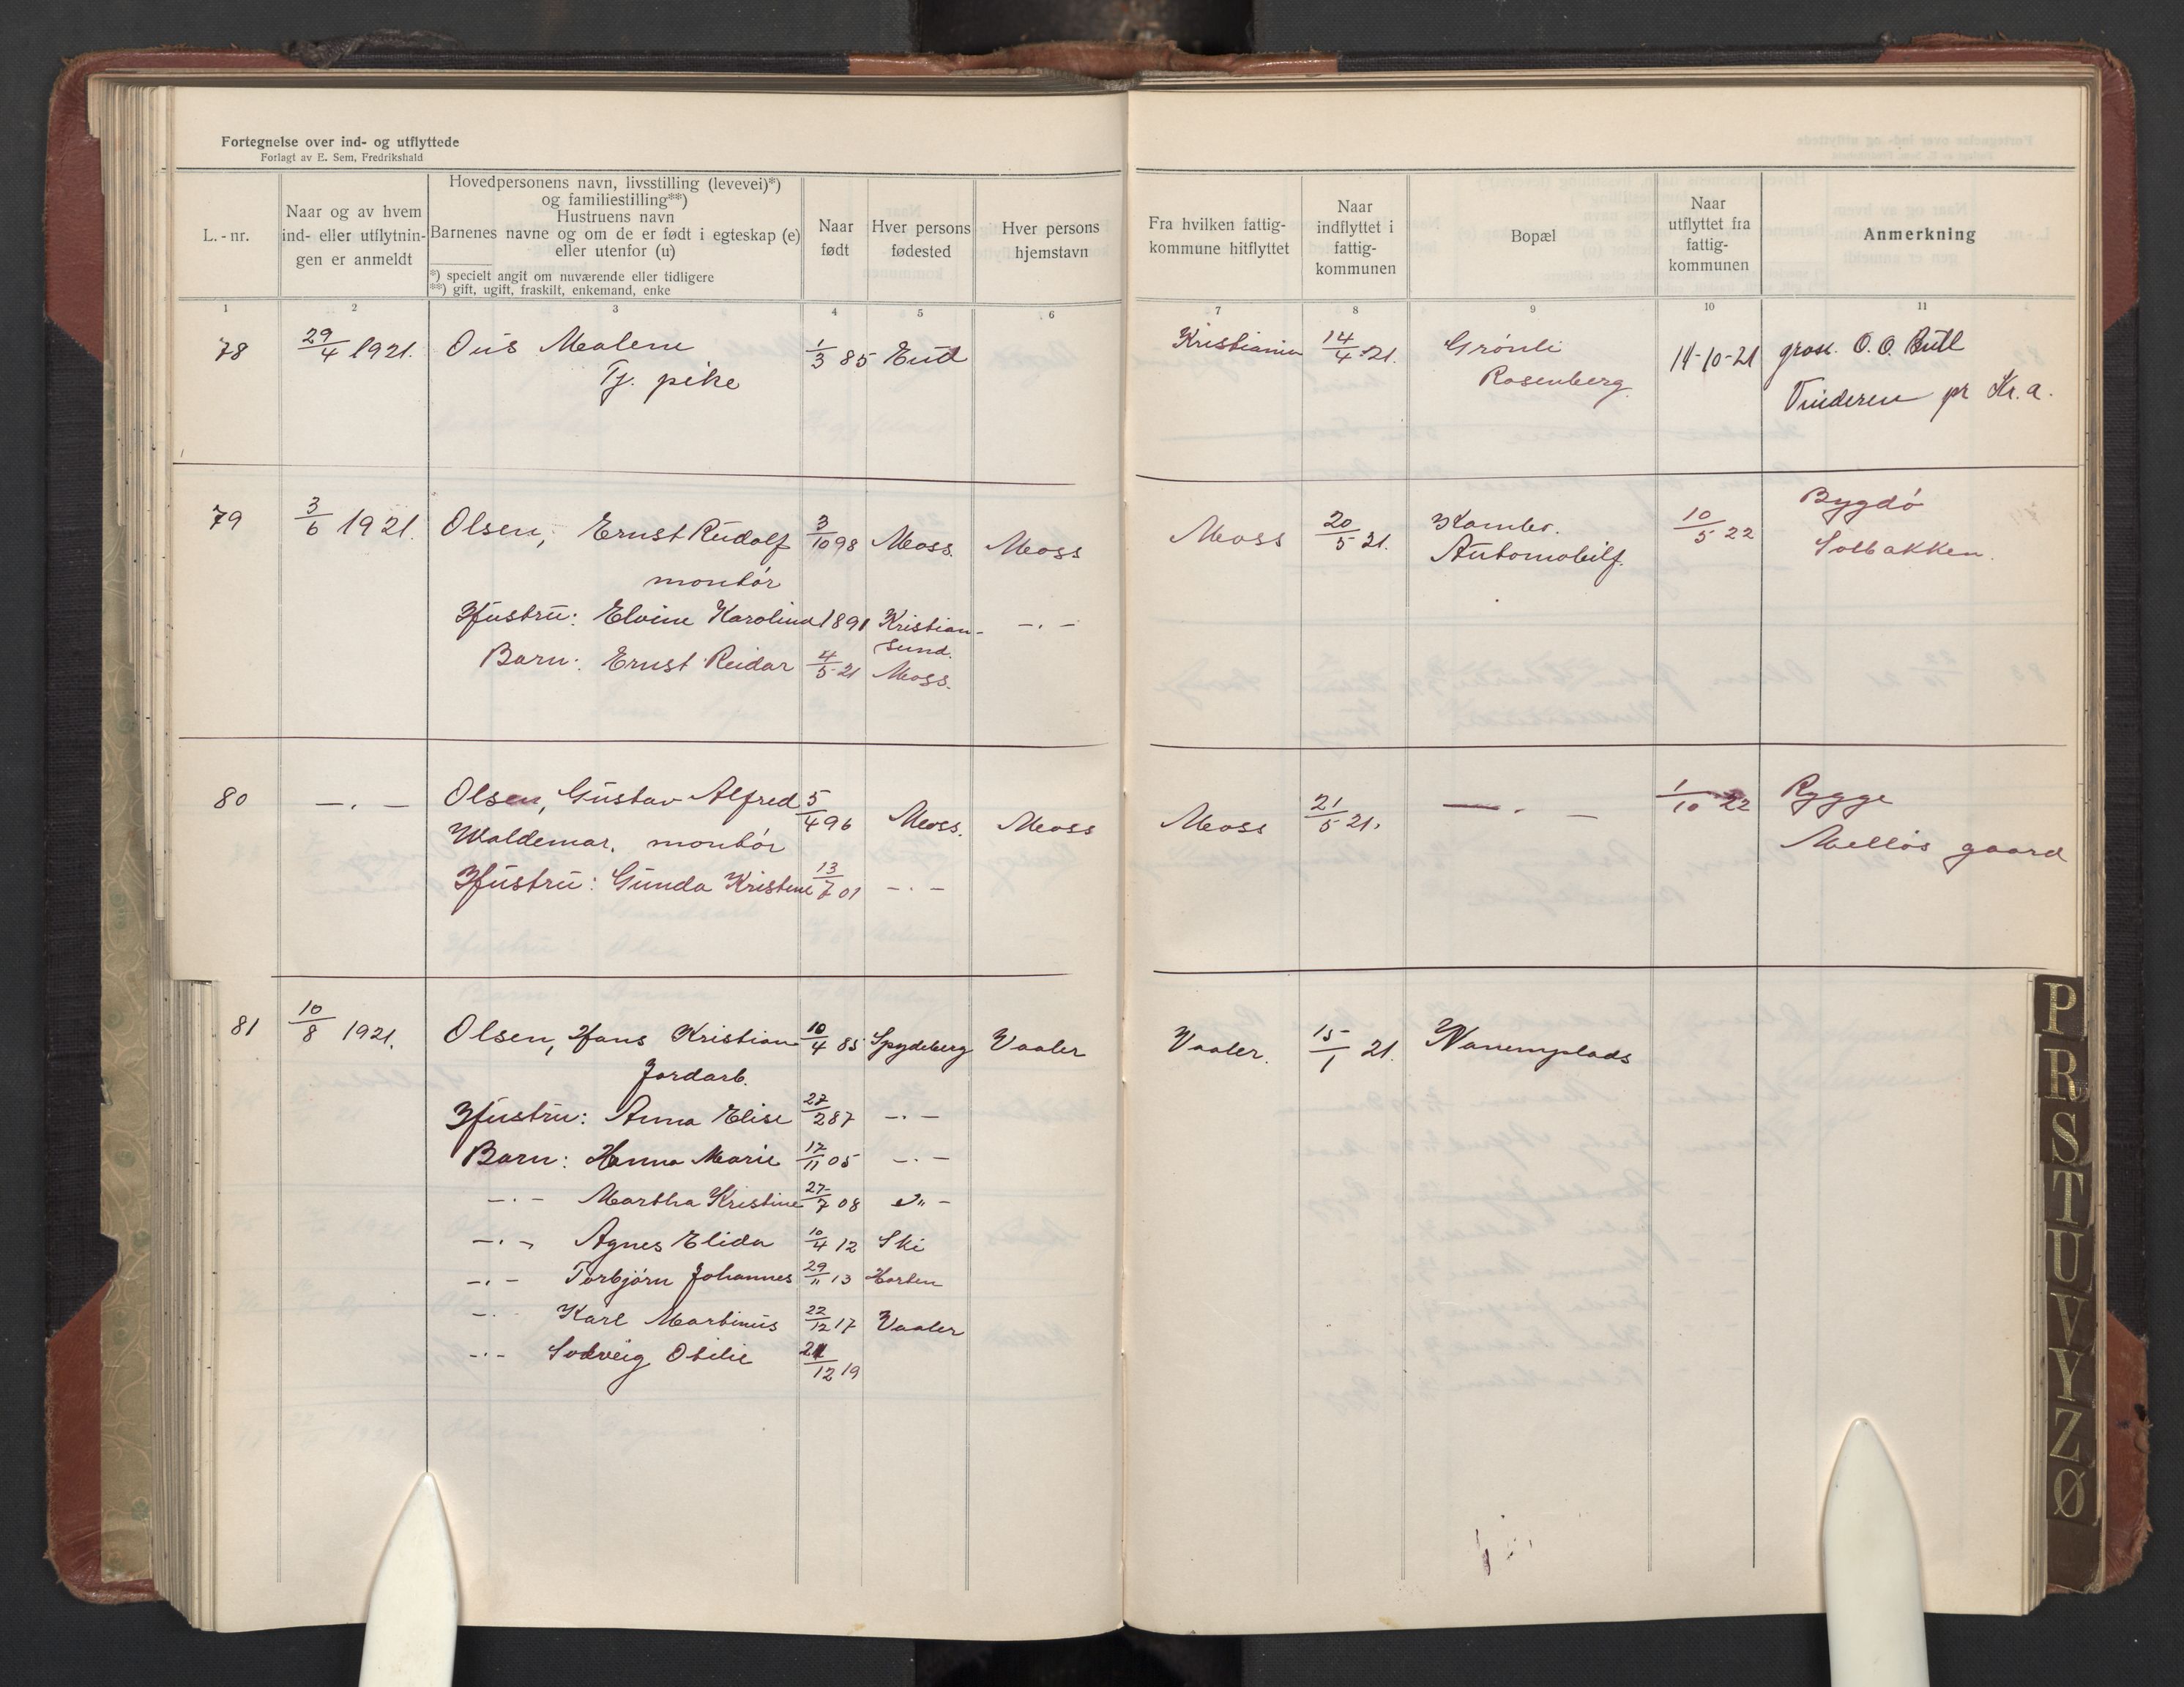 Fortegnelse over ind- og utflyttede
Forlagt av E. Sem, Fredrikshald
L.-nr.
Naar og av hvem ind- eller utflytningen er anmeldt
Hovedpersonens navn, livsstilling (levevei)*)
og familiestilling**)
Hustruens navn
Barnenes navne og om de er født i egteskap (e)
eller utenfor (u)
*) specielt angit om nuværende eller tidligere
**) gift, ugift, fraskilt, enkemand, enke
Naar født
Hver persons fødested
Hver persons hjemstavn
Fra hvilken fattigkommune hitflyttet
Naar indflyttet i fattigkommunen
Bopæl
Naar utflyttet fra fattigkommunen
Anmerkning
1 2 3 4 5 6 7 8 9 10 11
78 29/4 1921. Ous Malene 1/3 85 Kristiania 14/4 21. Grönli 14-10-21 O. O.
Tj. pike Rosenberg. Vinderen pr Kr.a.
79 3/6 1921. Olsen, Ernst Rudolf 3/10 98 Moss. Moss Moss 20/5 21. Kambo. 10/5 22 Bygdö
montör Automobilf. Solbakken.
Hustru: Elvine Karoline 1891 Kristian- -.-
sund.
Barn: Ernst Reidar 4/5 21 Moss.
80 -.- Olsen, Gustav Alfred 5/4 96 Moss. Moss Moss 21/5 21. -.- 1/10 22 Rygge
Waldemar, montör Mellös gaard
Hustru: Gunda Kristine 13/7 01 -.-
81 10/8 1921. Olsen, Hans Kristian 10/4 85 Spydeberg Vaaler Vaaler. 15/1 21.
Jordarb.
Hustru: Anna Elise 27/2 87 -.-
Barn: Hanna Marie 17/11 05 -.-
-.- Martha Kristine 27/7 08 -"-
-.- Agnes Elida 10/4 12 Ski
-.- Torbjörn Johannes 29/11 13 Horten
-.- Karl Martinus 22/12 17 Vaaler
-.- Solveig Otilie 12 19
P
R
S
T
U
V
Y
Z
Ø